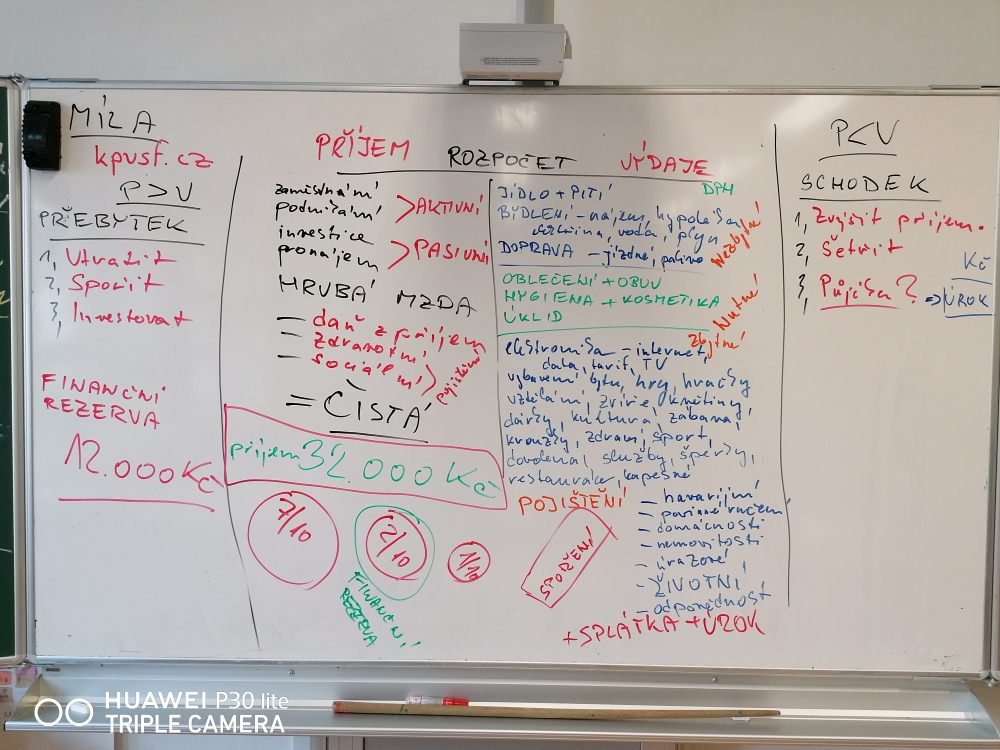 MÍLA
kpusf.cz
P>V
PŘEBYTEK
1, Utratit
2, Spořit
3, Investovat
FINANČNÍ
REZERVA
12.000 Kč
PŘÍJEM ROZPOČET VÝDAJE
zaměstnání
podnikání
AKTIVNÍ
investice
pronájem
PASIVNÍ
HRUBÁ MZDA
- daň z příjem
- zdravotní
- sociální
pojištění
= ČISTÁ
příjem 32.000 Kč
7/10
2/10
1/10
FINANČNÍ
REZERVA
DPH
JÍDLO + PITÍ
BYDLENÍ - nájem, hypotéka,
elektřina, voda, plyn
DOPRAVA - jízdné, palivo
Nezbytné
OBLEČENÍ + OBUV
HYGIENA + KOSMETIKA
ÚKLID
Nutné
Zbytné
elektronika - internet,
data, tarif, TV
vybavení bytu, hry, hračky
vzdělání, zvíře, květiny,
dárky, kultura, zábava,
kroužky, zdraví, sport,
dovolená, služby, šperky,
restaurace, kapesné
POJIŠTĚNÍ
- havarijní
- povinné ručení
- domácnosti
- nemovitosti
- úrazové
- ŽIVOTNÍ
- odpovědnost
SPOŘENÍ
+ SPLÁTKA + ÚROK
P<V
SCHODEK
1, Zvýšit příjem.
2, Šetřit
3, Půjčka?
Kč
=> ÚROK
HUAWEI P30 lite
TRIPLE CAMERA